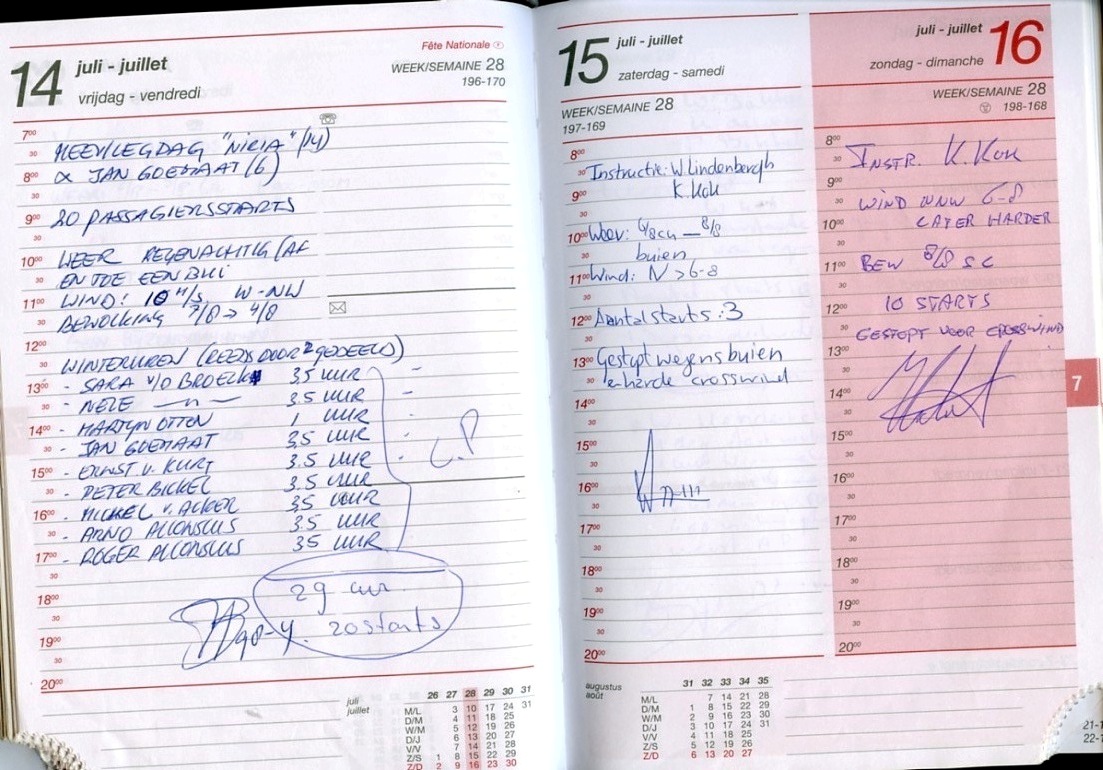 14
juli - juillet
vrijdag - vendredi
Fête Nationale F
WEEK/SEMAINE 28
196-170
7⁰⁰
30 MEEVLIEGDAG "NICIA" (14)
8⁰⁰ & JAN GOEMAAT (6)
30
9⁰⁰ 20 PASSAGIERSSTARTS
30
10⁰⁰ WEER REGENACHTIG (AF
30 EN TOE EEN BUI
11⁰⁰ WIND: 10 M/S W-NW
30 BEWOLKING 7/8 → 4/8
12⁰⁰
30 WINTERUREN (REEDS DOOR 2 GEDEELD)
13⁰⁰ - SARA V/D BROEK 3,5 UUR -
30 - NELE — " — 3.5 UUR -
14⁰⁰ - MARTYN OTTEN 1 UUR -
30 - JAN GOEMAAT 3,5 UUR
15⁰⁰ - ERNST V. KURT 3.5 UUR -
30 - PETER BICKEL 3.5 UUR
16⁰⁰ - MICHEL V. ACKER 3,5 UUR
30 - ARNO ALLONSIUS 3.5 UUR
17⁰⁰ - ROGER ALLONSIUS 3.5 UUR
30
18⁰⁰ 29 uur
30
19⁰⁰ 20 starts
30
20⁰⁰
juli
juillet
26 27 28 29 30 31
M/L 3 10 17 24 31
D/M 4 11 18 25
W/M 5 12 19 26
D/J 6 13 20 27
V/V 7 14 21 28
Z/S 1 8 15 22 29
Z/D 2 9 16 23 30
15
juli - juillet
zaterdag - samedi
WEEK/SEMAINE 28
197-169
8⁰⁰
30 Instructie: W Lindenbergh
9⁰⁰ K. Kok
30
10⁰⁰ Weer: 6/8 cu — 8/8
30 buien
11⁰⁰ Wind: N > 6-8
30
12⁰⁰ Aantal starts: 3
30
13⁰⁰ Gestopt wegens buien
30 en harde crosswind
14⁰⁰
30
15⁰⁰
30
16⁰⁰
30
17⁰⁰
30
18⁰⁰
30
19⁰⁰
30
20⁰⁰
augustus
août
31 32 33 34 35
M/L 7 14 21 28
D/M 1 8 15 22 29
W/M 2 9 16 23 30
D/J 3 10 17 24 31
V/V 4 11 18 25
Z/S 5 12 19 26
Z/D 6 13 20 27
juli - juillet
16
zondag - dimanche
WEEK/SEMAINE 28
198-168
8⁰⁰
30 INSTR. K. KOK
9⁰⁰
30 WIND WNW 6-8
10⁰⁰ LATER HARDER
30
11⁰⁰ BEW 8/8 SC
30
12⁰⁰ 10 STARTS
30 GESTOPT VOOR CROSSWIND
13⁰⁰
30
14⁰⁰
30
15⁰⁰
30
16⁰⁰
30
17⁰⁰
30
18⁰⁰
30
19⁰⁰
30
20⁰⁰
7
21-1
22-1